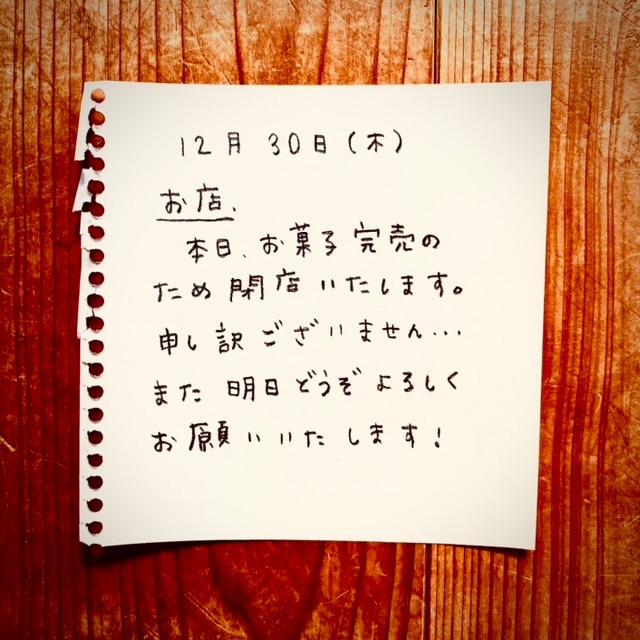 12月 30日(木)
お店、
本日、お菓子完売の
ため 閉店いたします。
申し訳ございません...
また 明日どうぞよろしく
お願いいたします!